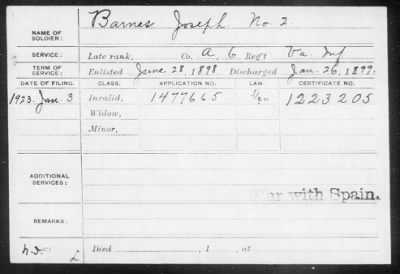 NAME OF SOLDIER: Barnes Joseph No 2.
SERVICE: Late rank, Co. A, 6 Reg't Va Inf
TERM OF SERVICE: Enlisted June 28, 1898, Discharged Jan. 26, 1899.
DATE OF FILING. CLASS. APPLICATION NO. LAW CERTIFICATE NO.
1923. Jan. 3 Invalid, 1477665 1223205
Widow,
Minor,
ADDITIONAL SERVICES:
War with Spain.
REMARKS:
Died , 1 , at